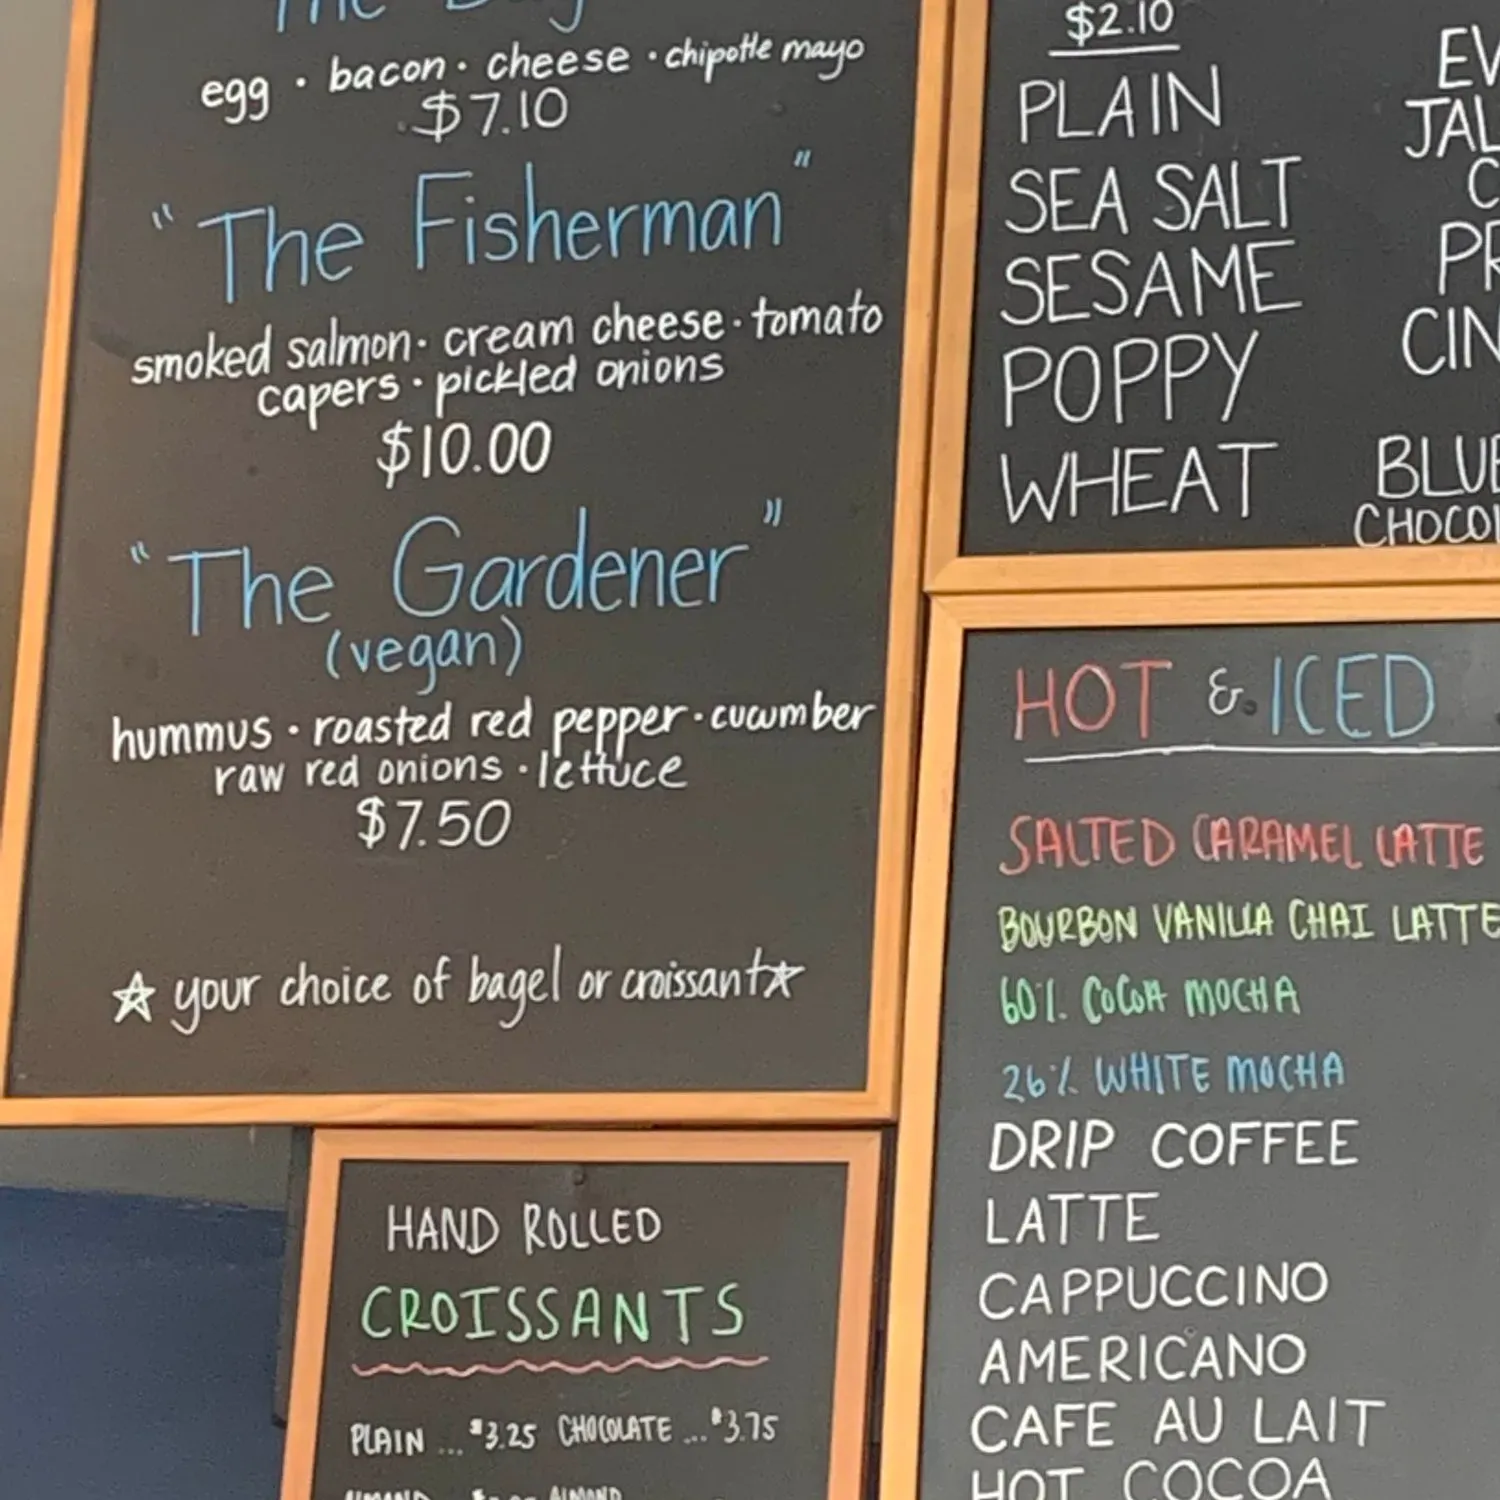 The
egg · bacon · cheese · chipotle mayo
$7.10
"The Fisherman"
smoked salmon · cream cheese · tomato
capers · pickled onions
$10.00
"The Gardener"
(vegan)
hummus · roasted red pepper · cucumber
raw red onions · lettuce
$7.50
☆ your choice of bagel or croissant ☆
HAND ROLLED
CROISSANTS
PLAIN ... $3.25 CHOCOLATE ... $3.75
ALMOND
$2.10
PLAIN
SEA SALT
SESAME
POPPY
WHEAT
EV
JAL
C
PR
CIN
BLUE
CHOCO
HOT & ICED
SALTED CARAMEL LATTE
BOURBON VANILLA CHAI LATTE
60% COCOA MOCHA
26% WHITE MOCHA
DRIP COFFEE
LATTE
CAPPUCCINO
AMERICANO
CAFE AU LAIT
HOT COCOA